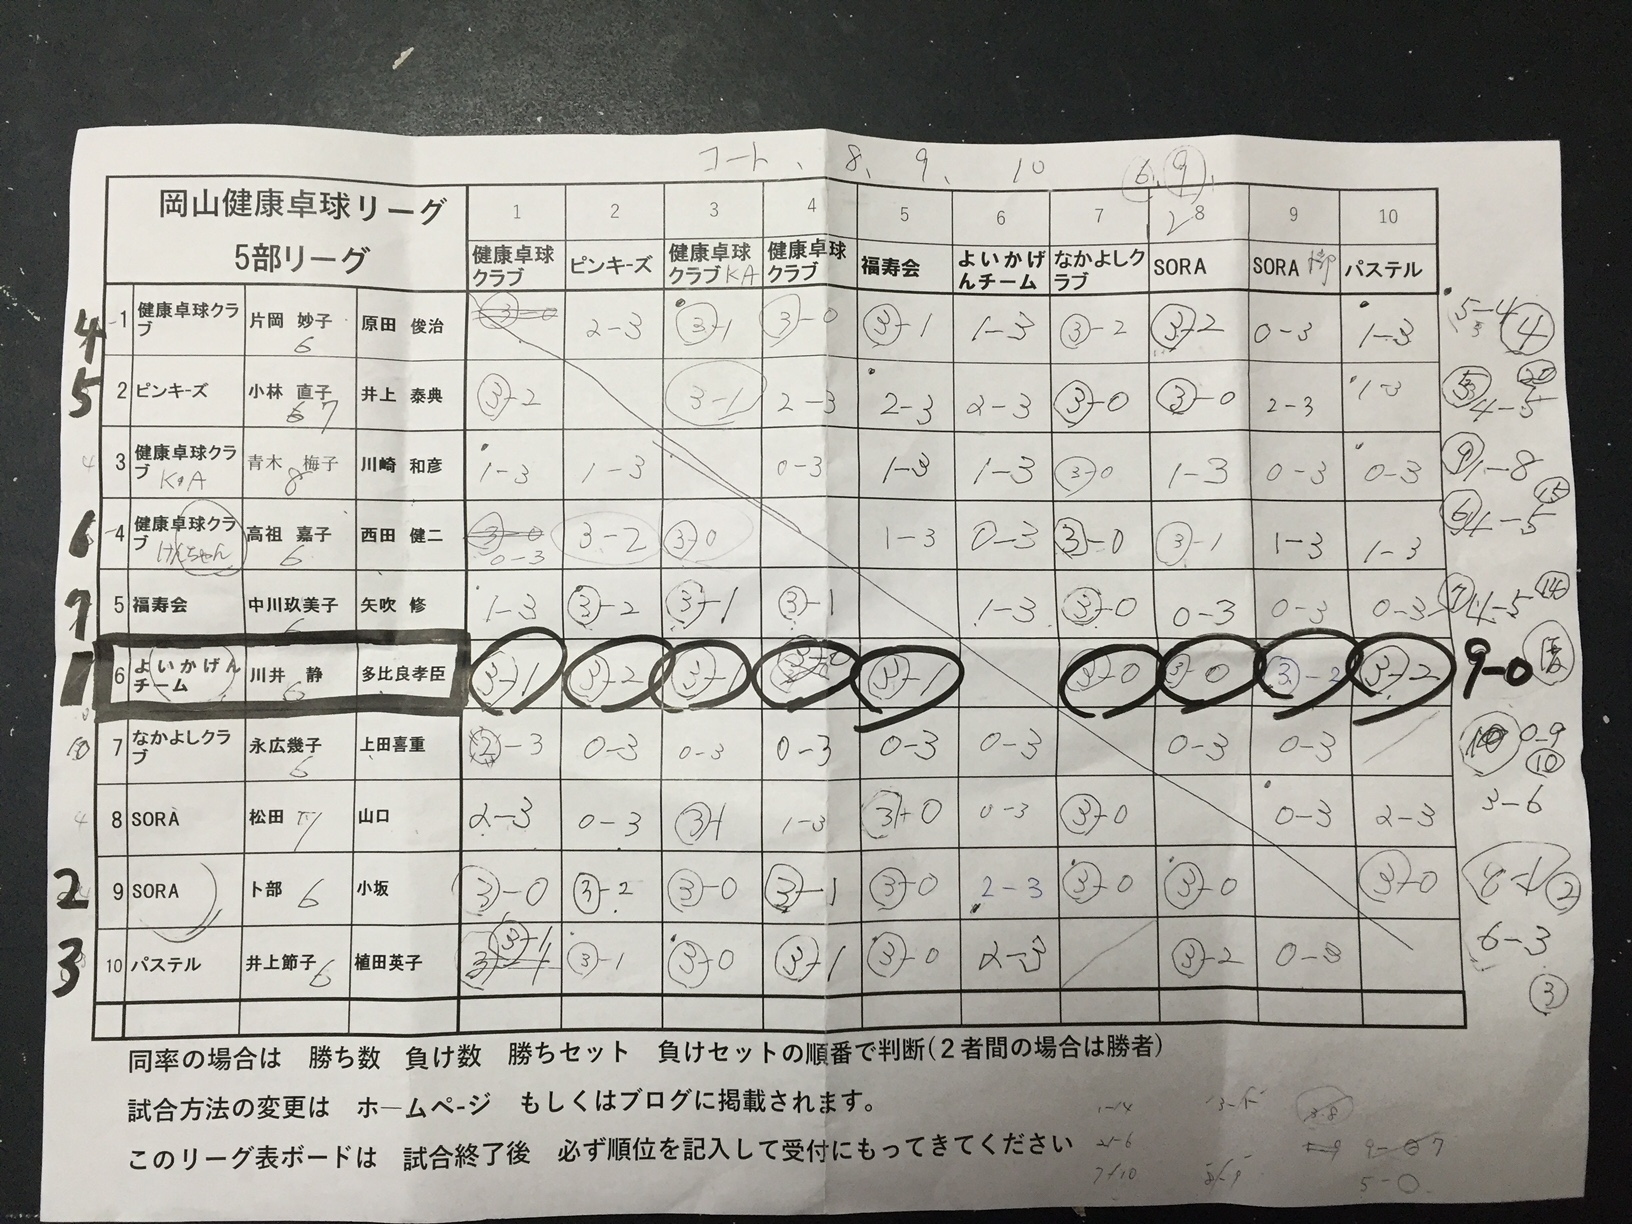 コート、 8、 9、 10 6、9、
岡山健康卓球リーグ
5部リーグ
1 2 3 4 5 6 7 8 9 10
健康卓球クラブ ピンキーズ 健康卓球クラブ KA 健康卓球クラブ 福寿会 よいかげんチーム なかよしクラブ SORA SORA パステル
4 1 健康卓球クラブ 片岡 妙子 6 原田 俊治 3-0 2-3 3-1 3-0 3-1 1-3 3-2 3-2 0-3 1-3 5-4 4
5 2 ピンキーズ 小林 直子 67 井上 泰典 3-2 3-1 2-3 2-3 2-3 3-0 3-0 2-3 1-3 5 4-5
3 健康卓球クラブ KA 青木 梅子 8 川崎 和彦 1-3 1-3 0-3 1-3 1-3 3-0 1-3 0-3 0-3 9 1-8
6 4 健康卓球クラブ けんちゃん 高祖 嘉子 6 西田 健二 3-0 0-3 3-2 3-0 1-3 0-3 3-0 3-1 1-3 1-3 6 4-5 15
7 5 福寿会 中川玖美子 6 矢吹 修 1-3 3-2 3-1 3-1 1-3 3-0 0-3 0-3 0-3 7 4-5 14
1 6 よいかげんチーム 川井 静 6 多比良孝臣 3-1 3-2 3-1 3-0 3-1 3-0 3-0 3-2 3-2 9-0
10 7 なかよしクラブ 永広幾子 6 上田喜重 2-3 0-3 0-3 0-3 0-3 0-3 0-3 0-3 10 0-9 10
8 SORA 松田 7 山口 2-3 0-3 3-1 1-3 3-0 0-3 3-0 0-3 2-3 3-6
2 9 SORA 卜部 6 小坂 3-0 3-2 3-0 3-1 3-0 2-3 3-0 3-0 3-0 2
3 10 パステル 井上節子 6 植田英子 3-1 3-1 3-0 3-1 3-0 2-3 3-2 0-3 6-3
3
同率の場合は 勝ち数 負け数 勝ちセット 負けセットの順番で判断(2者間の場合は勝者)
試合方法の変更は ホームページ もしくはブログに掲載されます。
このリーグ表ボードは 試合終了後 必ず順位を記入して受付にもってきてください
1-4
2-6
7-10
5-0